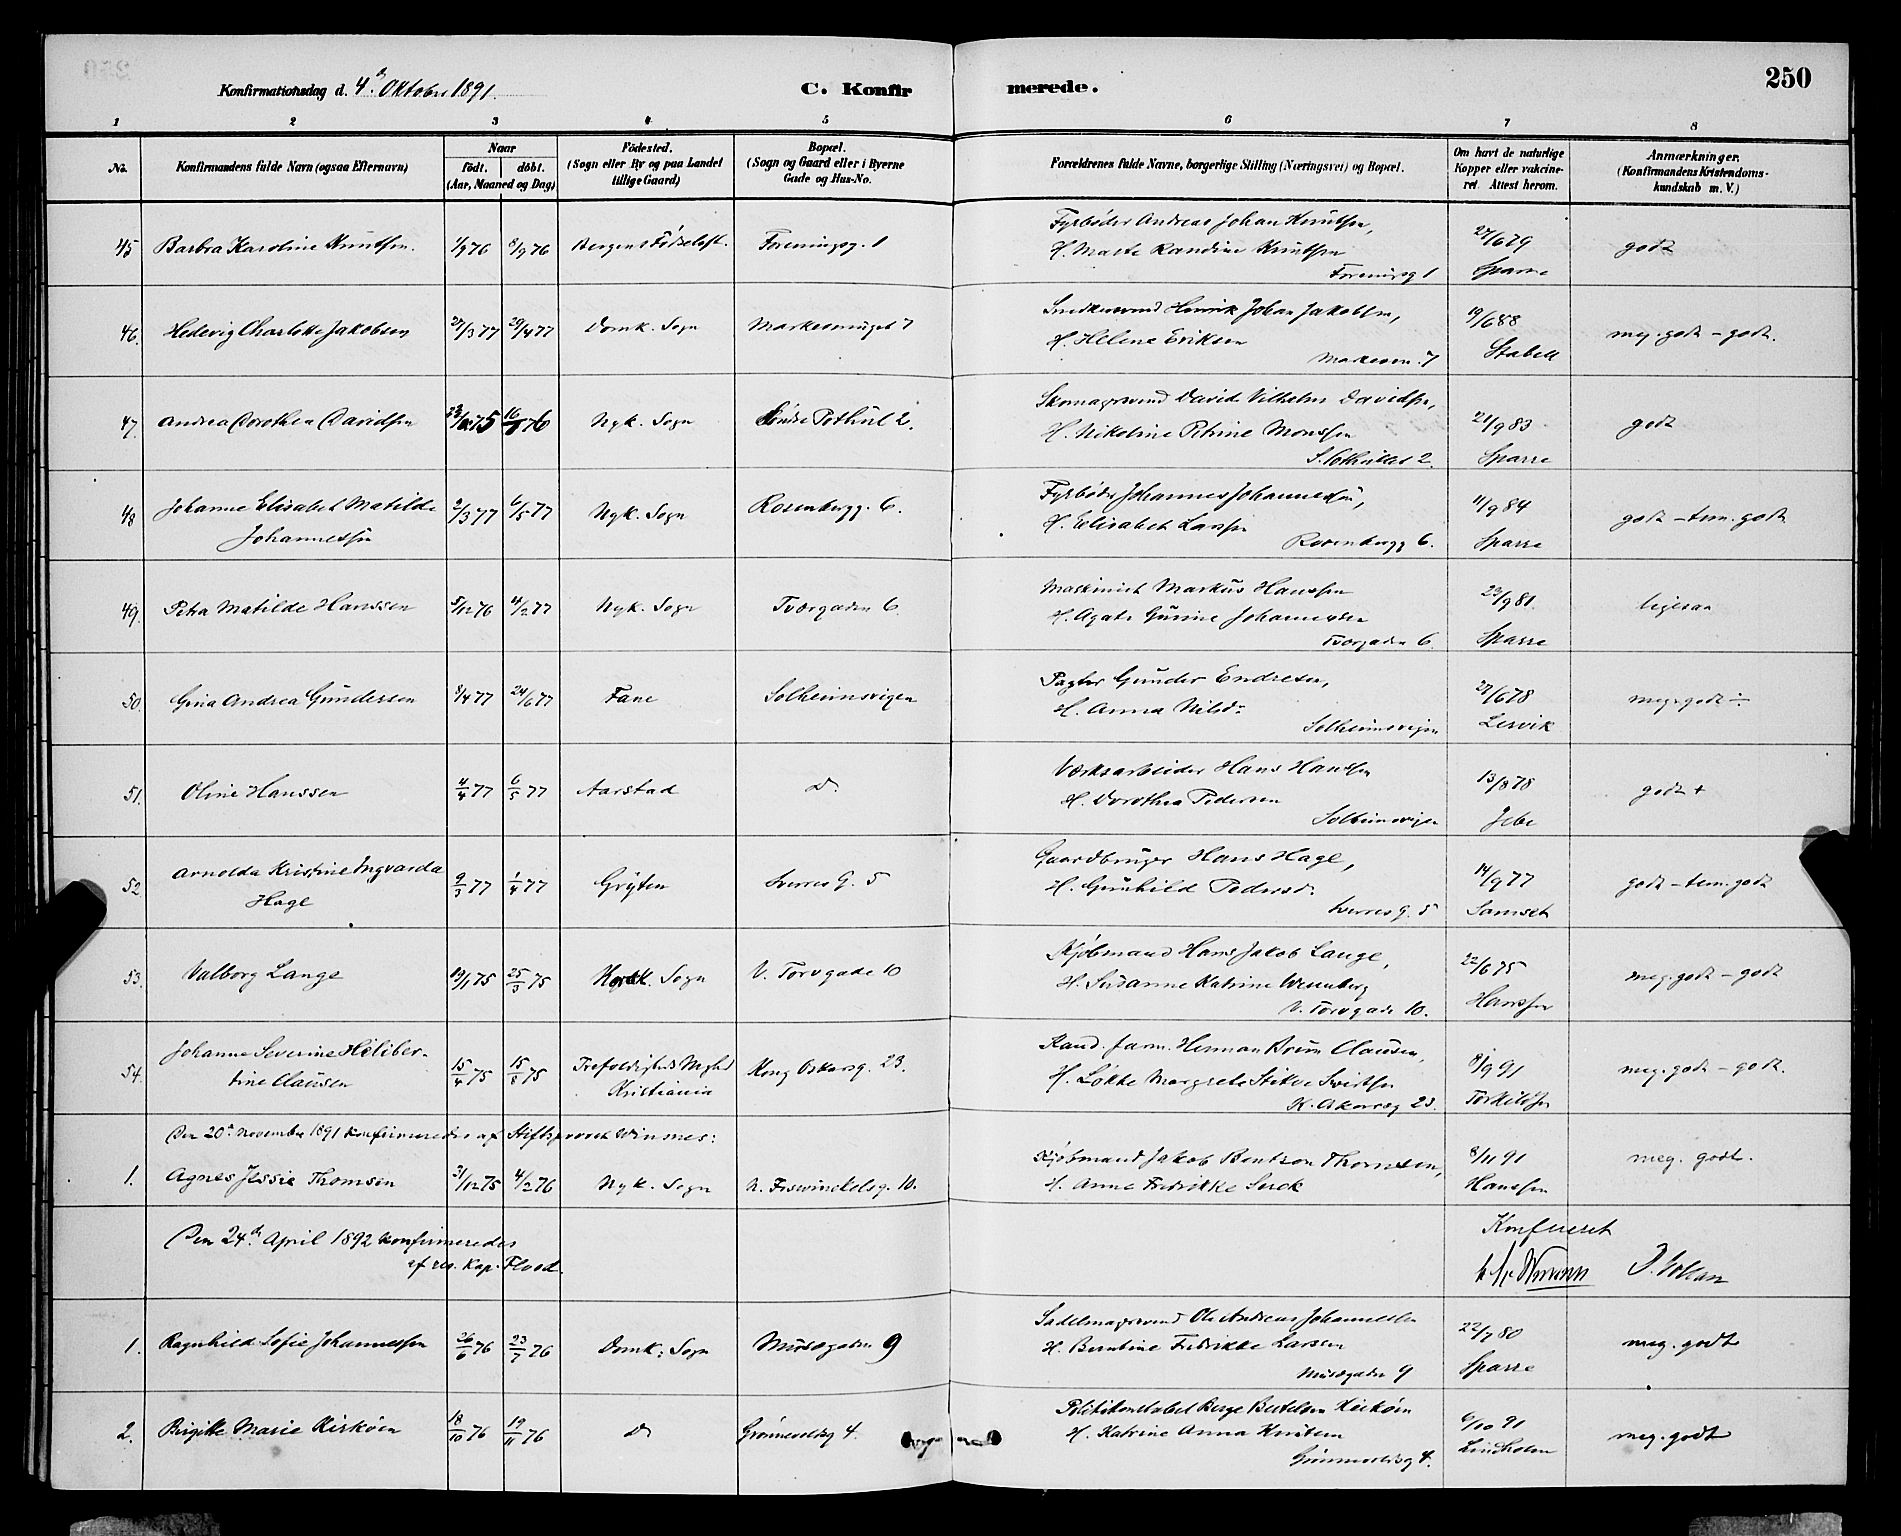 Konfirmationsdag d. 4de Oktober 1891.
C. Konfir
merede.
250
1 2 3 4 5 6 7 8
No.
Konfirmandens fulde Navn (ogsaa Efternavn)
Naar
født. døbt.
(Aar, Maaned og Dag)
Fødested.
(Sogn eller By og paa Landet
tillige Gaard)
Bopæl.
(Sogn og Gaard eller i Byerne
Gade og Hus-No.
Forældrenes fulde Navne, borgerlige Stilling (Næringsvei) og Bopæl.
Om havt de naturlige
Kopper eller vakcine-
ret. Attest herom.
Anmærkninger.
(Konfirmandens Kristendoms-
kundskab m. V.)
45 Barbra Karoline Knutsen. 1/9 76 8/9 76 Bergens Fødselsst. Foreningsg. 1
Fyrbøder Andreas Johan Knutsen,
H. Marte Randine Knutsen
Foreningsg 1
27/6 79
Sparre
godt
46. Hedevig Charlotte Jakobsen 27/3 77 29/4 77 Domk. Sogn Markesmuget 7
Snedkersvend Henrik Johan Jakobsen,
H. Helene Eriksen
Markesm. 7
19/6 88
Stabell
meg. godt - godt.
47. Andrea Dorothea Davidsen Nyk. Sogn Søndre Pothul 2.
Skomagersvend David Vilhelm Davidsen,
H. Nikoline Petrine Monssen
S. Pothullet 2.
21/9 83
Sparre
godt
48 Johanne Elisabet Matilde
Johannessen
2/3 77 6/5 77 Nyk. Sogn Rosenbergg. 6.
Fyrbøder Johannes Johannessen,
H. Elisabet Larsen
Rosenbergg 6.
11/9 84
Sparre
godt - tem. godt
49. Petra Matilde Hanssen 5/12 76 4/2 77 Nyk. Sogn Tværgaden 6
Maskinist Markus Hanssen
H. Agate Gurine Johannessen
Tværgaden 6
23/9 81
Sparre
ligesaa
50. Gina Andrea Gundersen 8/4 77 24/6 77 Fane Solheimsvigen
Pagter Gunder Endresen,
H. Anna Nilsdr
Solheimsvigen
27/6 78
Lervik
meg. godt ÷
51. Oline Hanssen 4/4 77 6/5 77 Aarstad Do
Værksarbeider Hans Hanssen
H. Dorothea Pedersen
Solheimsvigen
13/8 78
Jebe
godt +
52. Arnolda Kristine Ingvarda
Hage
9/3 77 1/4 77 Grytten Sverres G. 5
Gaardbruger Hans Hage,
H. Gunhild Pedersd.
Sverres G. 5
14/9 77
Samset
godt - tem. godt
53. Valborg Lange 19/1 75 25/3 75 Korsk. Sogn V. Torvgade 10
Kjøbmand Hans Jakob Lange,
H. Susanne Katrine Wesenberg
V. Torvgade 10.
22/6 75
Hanssen
meg. godt - godt
54. Johanne Severine Heliber-
tine Clausen
15/4 75 15/8 75 Trefoldigheds Meghd
Kristiania
Kong Oskarsg. 23.
Kand. farm. Herman Brun Clausen,
H. Løkke Margrete
K. Oskarsg 23.
8/9 91
Torkildsen
meg. godt - godt.
Den 20de November 1891 konfirmeredes af Stiftsprovst Winsnes:
1. Agnes Jessie Thomsen 31/12 75 4/2 76 Nyk. Sogn N. Fiswinckelsg. 10.
Kjøbmand Jakob Bentzon Thomsen,
H. Anne Fredrikke Serck
8/11 91
Hanssen
meg. godt.
Den 24de April 1892 konfirmeredes
af res. Kap. Flood.
Konfereret
1. Ragnhild Sofie Johannessen 26/6 76 23/7 76 Domk. Sogn Musegaden 9
Sadelmagersvend Ole Andreas Johannessen
H. Berntine Fredrikke Larsen
Musegaden 9
22/7 80
Sparre
meg. godt
2. Birgitte Marie Kirkøen 18/10 76 19/11 76 Do Grønnevoldsg 4.
Politikonstabel Berge Bertelsen Kirkøen
H. Katrine Anna Knutsen
Grønnevoldsg 4.
6/10 91
Lindholm
meg. godt